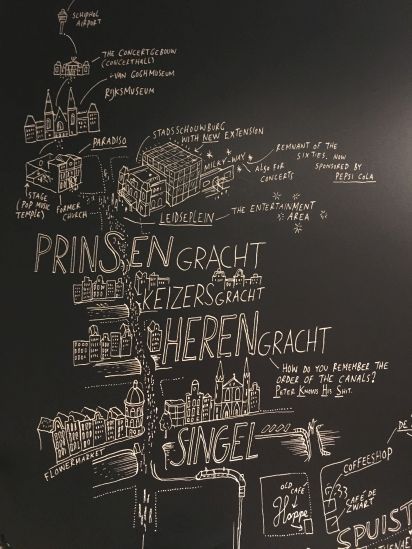 SCHIPHOL
AIRPORT
THE CONCERTGEBOUW
(CONCERTHALL)
VAN GOGH MUSEUM
RIJKSMUSEUM
PARADISO
STADSSCHOUWBURG
WITH NEW EXTENSION
MILKY-WAY
ALSO FOR
CONCERTS
REMNANT OF THE
SIXTIES. NOW
SPONSORED BY
PEPSI COLA
STAGE
(POP MUSIC
TEMPLE)
FORMER
CHURCH
LEIDSEPLEIN
THE ENTERTAINMENT
AREA
PRINSENGRACHT
KEIZERSGRACHT
HERENGRACHT
HOW DO YOU REMEMBER THE
ORDER OF THE CANALS?
PETER KNOWS HIS SHIT.
SINGEL
FLOWERMARKET
DE
COFFEESHOP
OLD
CAFÉ
Hoppe
CAFÉ DE
ZWART
SPUIST